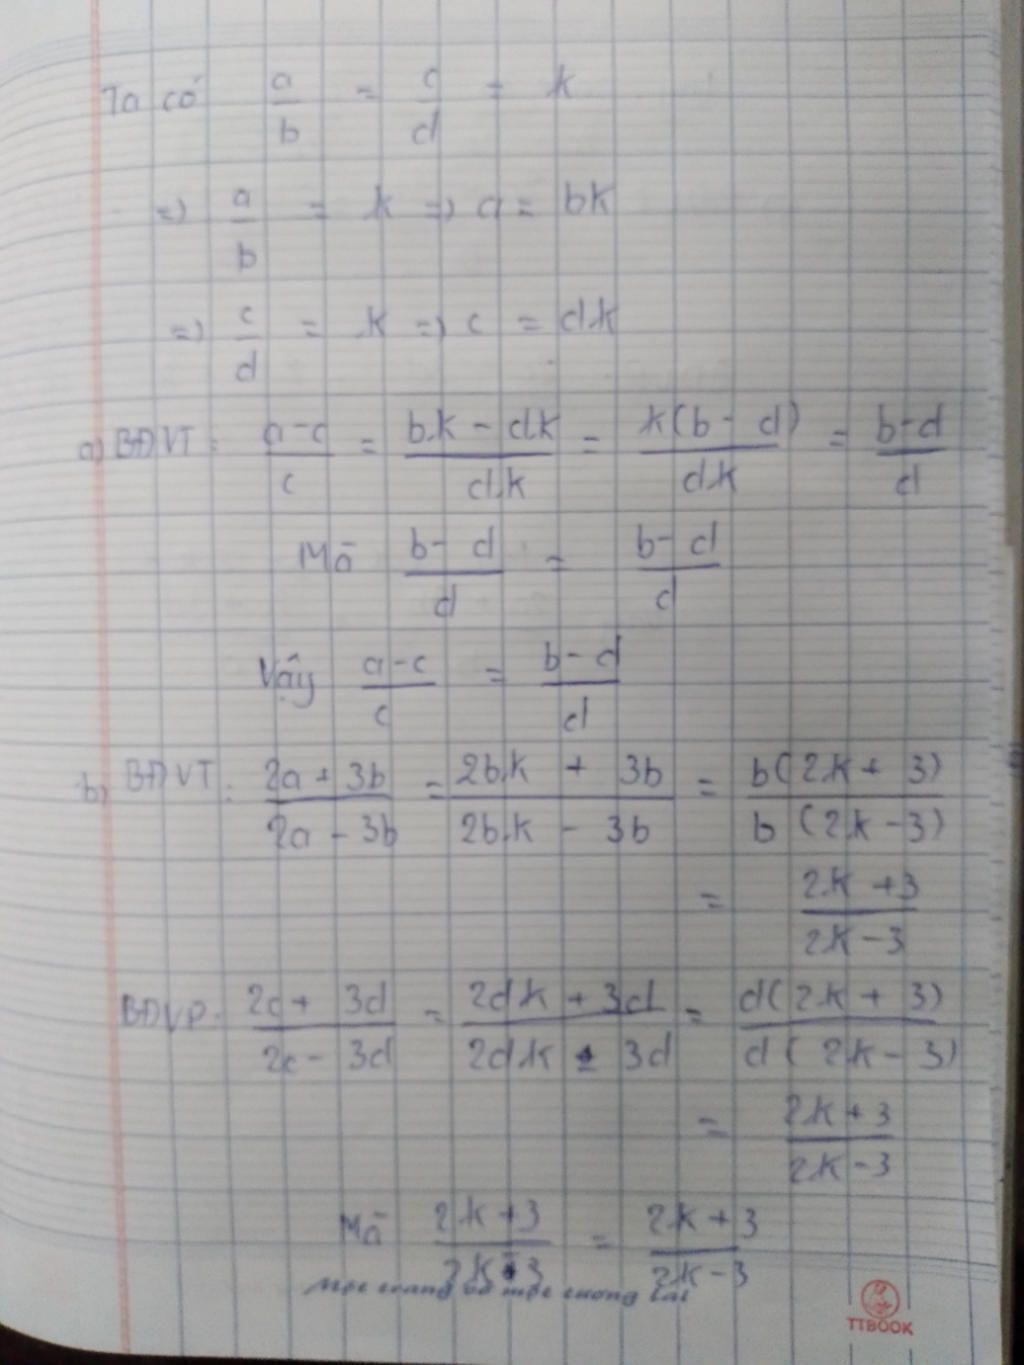 Ta có a/b = c/d = k
=> a/b = k => a = bk
=> c/d = k => c = d.k
a) BĐVT: a-c/c = b.k - dk/d.k = k(b - d)/d.k = b-d/d
Mà b- d/d = b- d/d
Vậy a-c/c = b-d/d
b) BĐVT: 2a + 3b/2a - 3b = 2b.k + 3b/2b.k - 3b = b(2k + 3)/b(2k-3)
= 2k +3/2k-3
BĐVP: 2c + 3d/2c - 3d = 2d.k + 3d/2d.k - 3d = d(2k + 3)/d(2k - 3)
= 2k+3/2k-3
Mà 2k+3/2k-3 = 2k+3/2k-3
TTBOOK